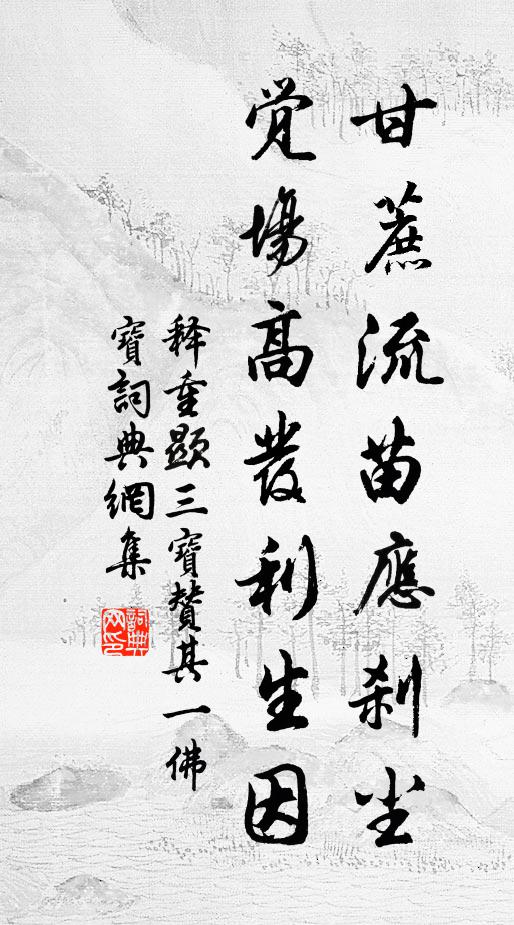 甘蔗流苗應刹尘
覺場高發利生因
释重顯三寶贊其一佛
寶詞典網集
詞典网印